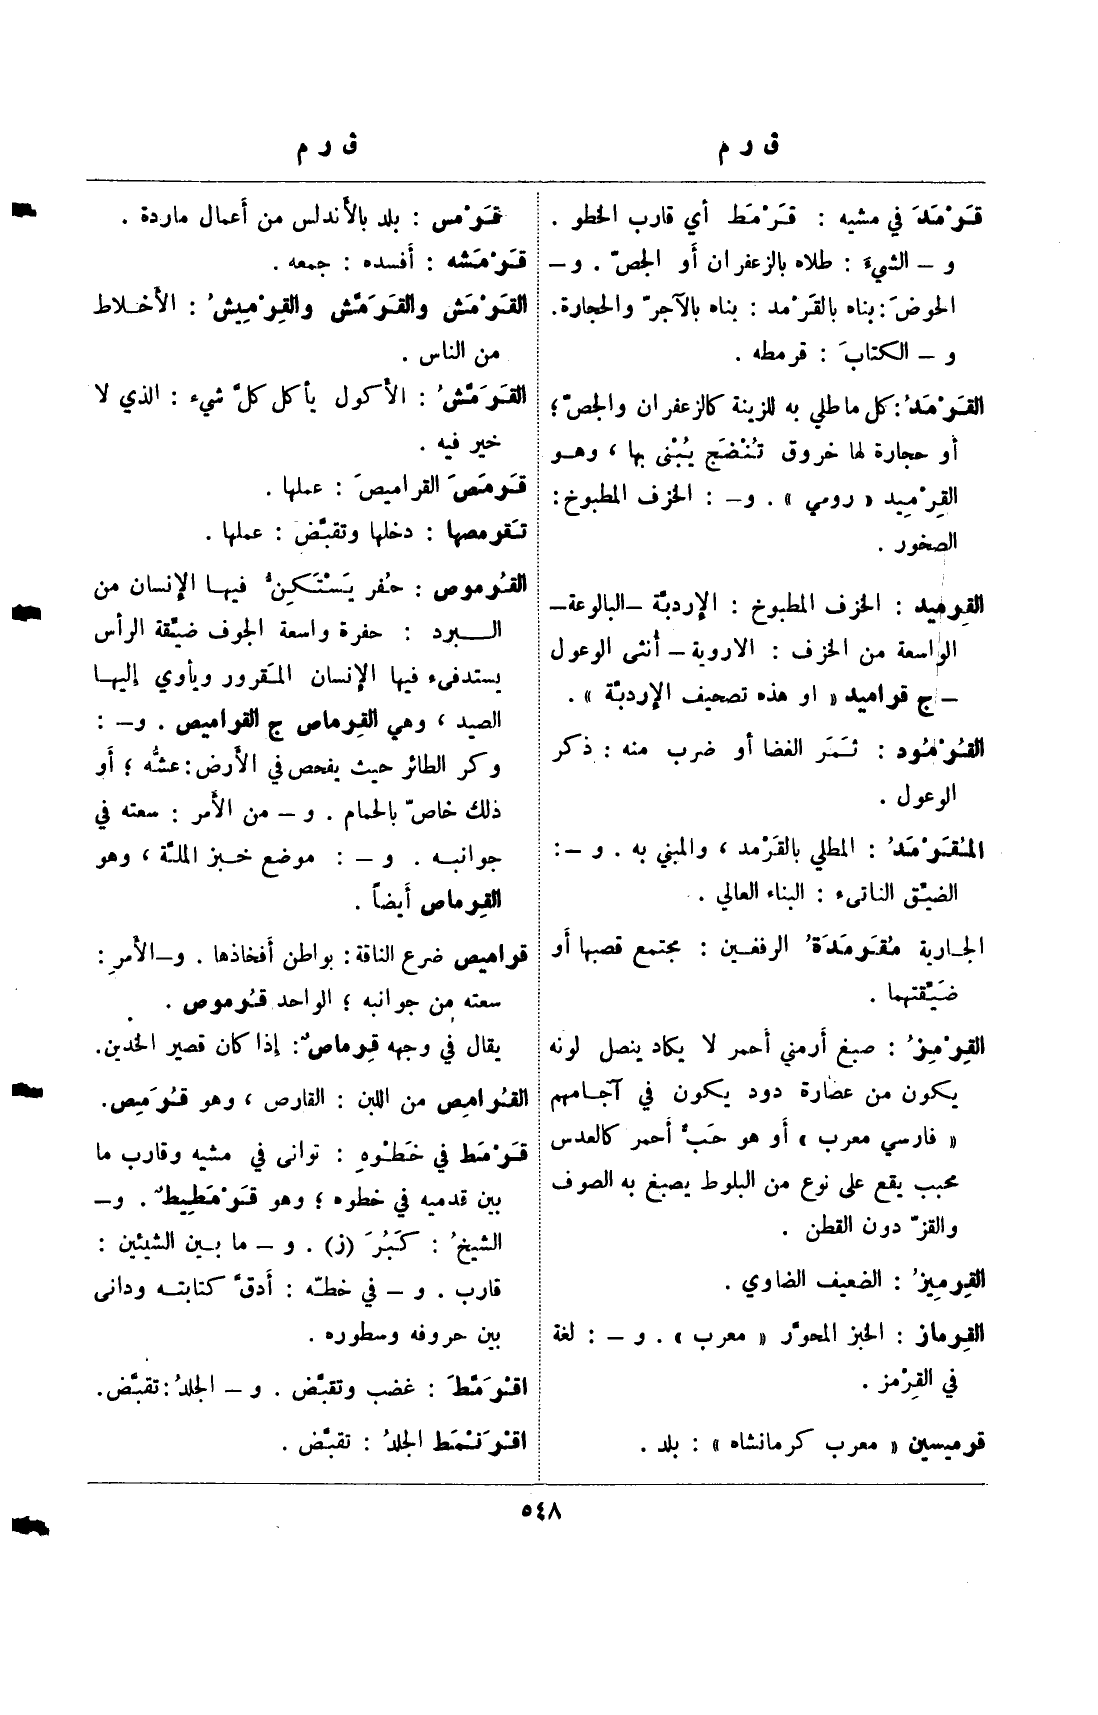 ق ر م
قَرْمَدَ في مشيه : قَرْمَط أي قارب الخطو .
و – الشيءَ : طلاه بالزعفران أو الجصّ . و –
الحوضَ : بناه بالقَرْمد : بناه بالآجرّ والحجارة .
و – الكتابَ : قرمطه .
القَرْمَدُ : كل ما طلي به للزينة كالزعفران والجصّ ؛
أو حجارة لها خروق تُنْضَج يُبْنى بها ، وهو
القِرْمِيد « رومي » . و– : الخزف المطبوخ :
الصخور .
القِرميد : الخزف المطبوخ : الإردبّة –البالوعة–
الواسعة من الخزف : الاروية – أنثى الوعول
– ج قراميد « او هذه تصحيف الإردبّة » .
القُرْمُود : ثَمَر الغضا أو ضرب منه : ذكر
الوعول .
المُقَرْمَدُ : المطلي بالقَرْمد ، والمبني به . و – :
الضيّق الناتىء : البناء العالي .
الجارية مُقَرمَدَةُ الرفغين : مجتمع قصبها أو
ضَيّقتهما .
القِرْمِزُ : صبغ أرمني أحمر لا يكاد ينصل لونه
يكون من عصارة دود يكون في آجامهم
« فارسي معرب » أو هو حَبٌّ أحمر كالعدس
محبب يقع على نوع من البلوط يصبغ به الصوف
والقزّ دون القطن .
القِرمِيزُ : الضعيف الضاوي .
القِرماز : الخبز المحوَّر « معرب » . و – : لغة
في القِرْمز .
قرميسين « معرب كرمانشاه » : بلد .
ق ر م
قَرْمس : بلد بالأندلس من أعمال ماردة .
قَرْمَشه : أفسده : جمعه .
القَرْمَش والقَرَمَّش والقِرْمِيشُ : الأخلاط
من الناس .
القَرَمَّشُ : الأكول يأكل كلَّ شيء : الذي لا
خير فيه .
قَرمَصَ القراميصَ : عملها .
تَقرمصها : دخلها وتقبَّض : عملها .
القُرموص : حُفر يَسْتَكِنُّ فيها الإنسان من
البرد : حفرة واسعة الجوف ضيّقة الرأس
يستدفىء فيها الإنسان المَقرور ويأوي إليها
الصيد ، وهي القِرماص ج القراميص . و– :
وكر الطائر حيث يفحص في الأرض : عشُّه ؛ أو
ذلك خاصّ بالحمام . و – من الأمر : سعته في
جوانبه . و – : موضع خبز الملّة ، وهو
القِرماص أيضاً .
قراميص ضرع الناقة : بواطن أفخاذها . و–الأمرِ :
سعته من جوانبه ؛ الواحد قُرموص .
يقال في وجهه قِرماصٌ : إذا كان قصير الخدين .
القُرامِص من اللبن : القارص ، وهو قُرَمِص .
قَرْمَط في خَطْوِهِ : توانى في مشيه وقارب ما
بين قدميه في خطوه ؛ وهو قَرْمَطِيطٌ . و–
الشيخُ : كَبُرَ (ز) . و – ما بين الشيئين :
قارب . و – في خطّه : أدقَّ كتابته ودانى
بين حروفه وسطوره .
اقْرَمَّطَ : غضب وتقبَّض . و – الجلدُ : تقبَّض .
اقْرَنْمَط الجلدُ : تقبَّض .
٥٤٨